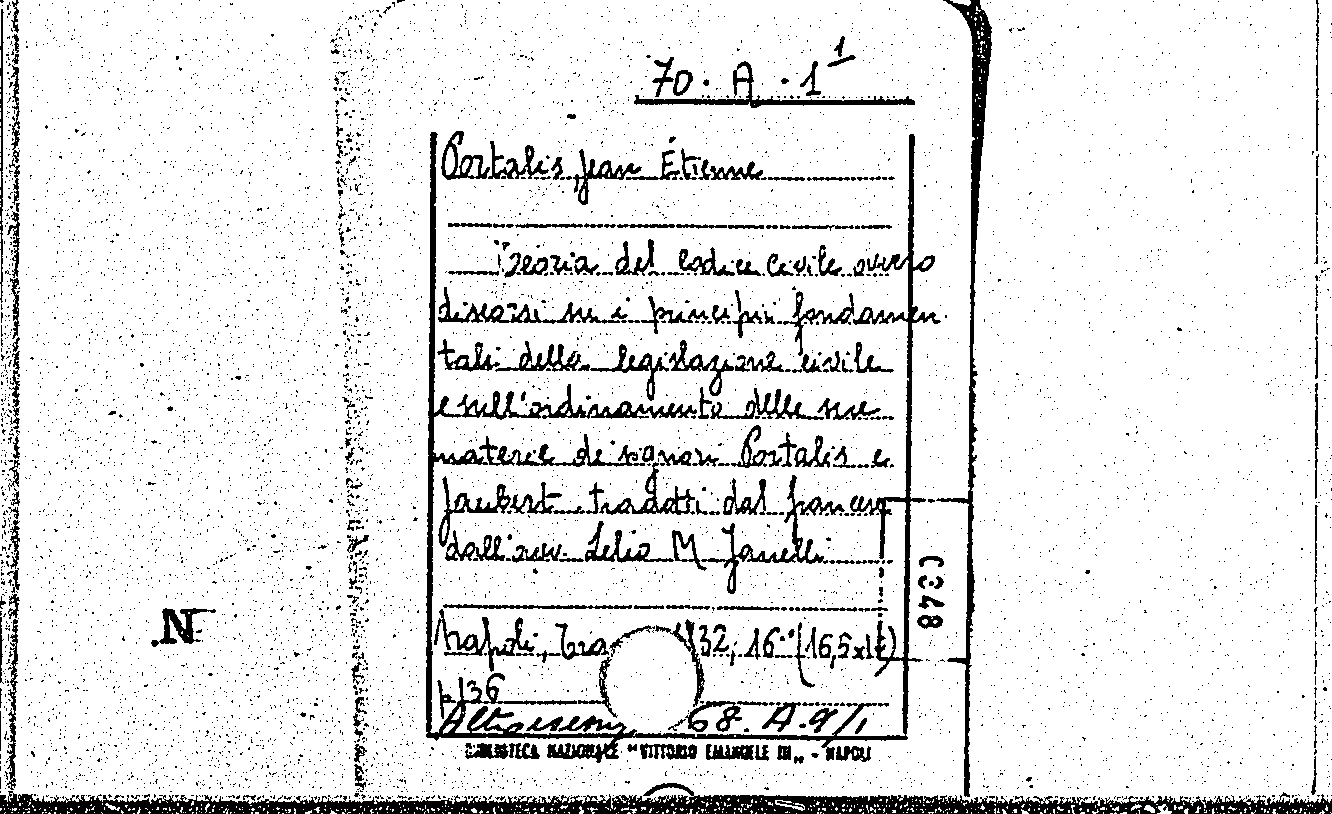 70. A. 1 1
Portalis, Jean Étienne
Teoria del Codice Civile ovvero
discorsi su i principii fondamen
tali della legislazione civile
e sull'ordinamento delle sue
materie de signori Portalis e
Jaubert tradotti dal francese
dall'avv. Lelio M Janelli
N.
0348
Napoli, 32, 16°
p. 136
68. A. 9/1
BIBLIOTECA NAZIONALE "VITTORIO EMANUELE III" - NAPOLI